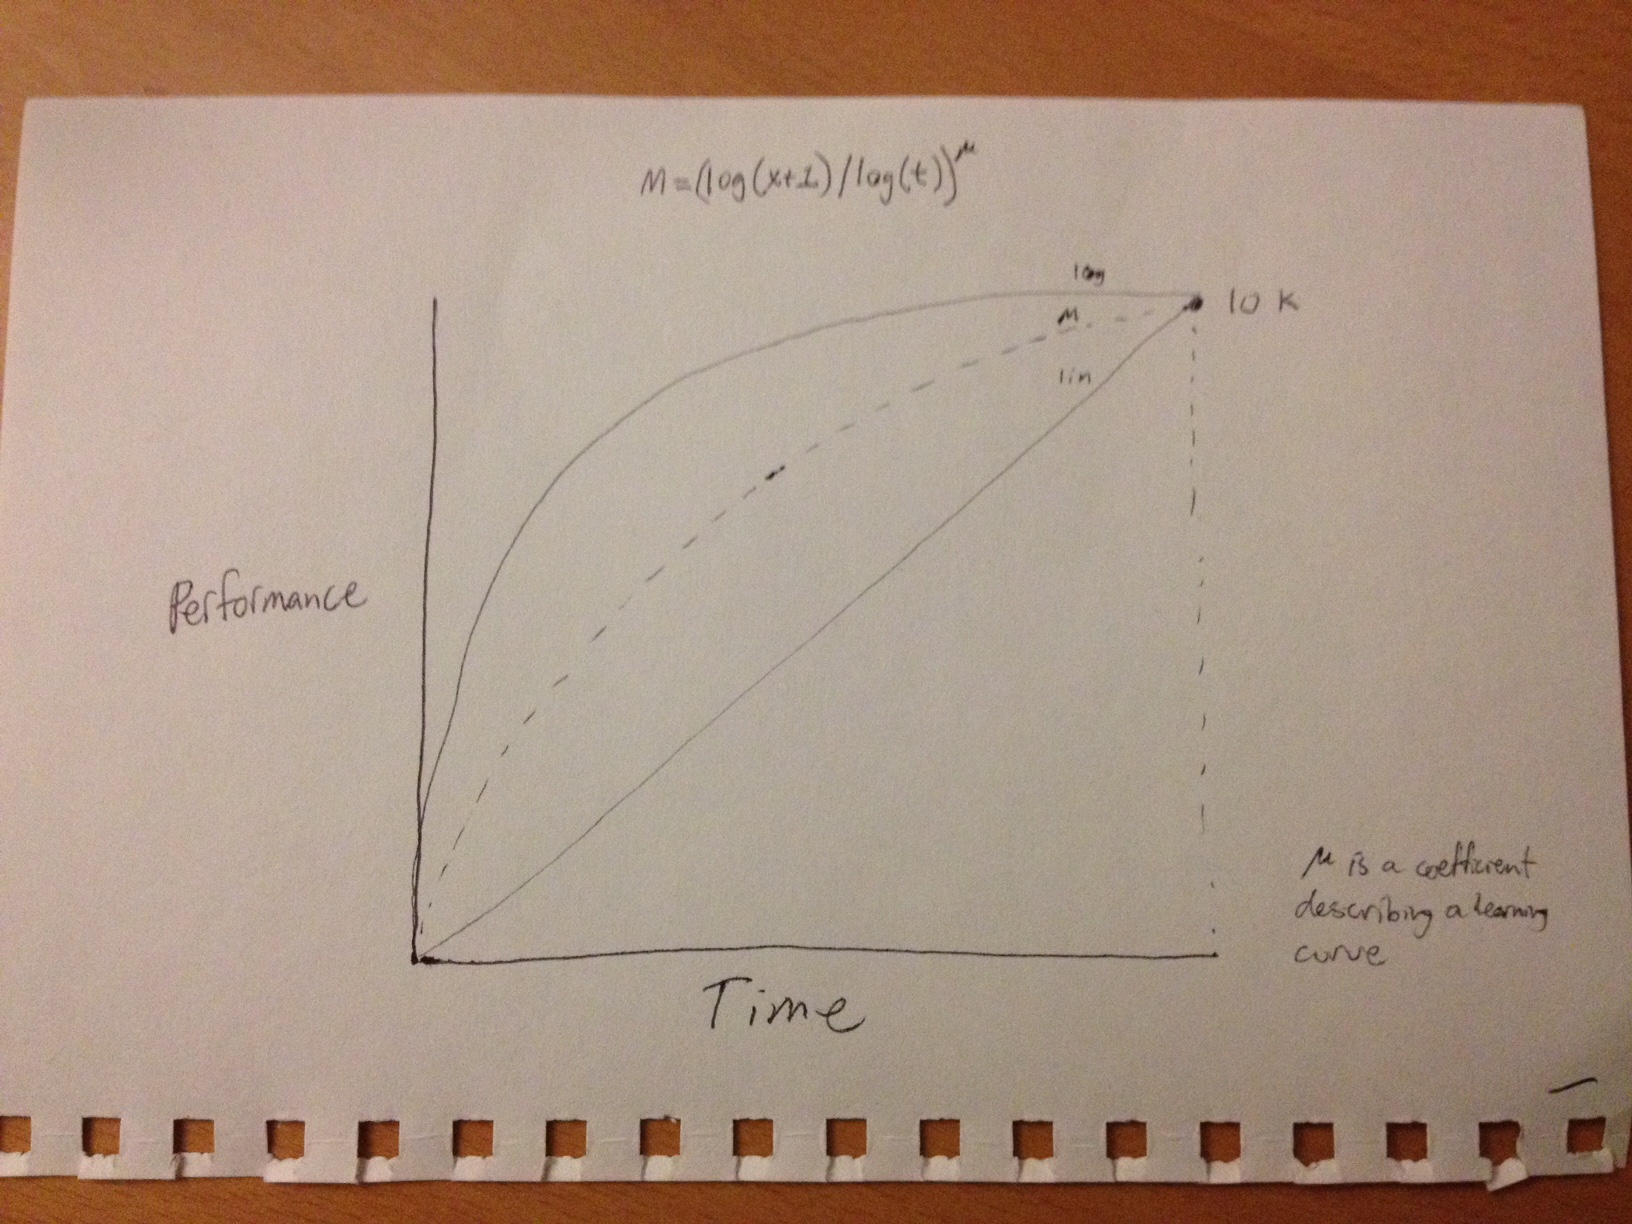 M=(log(x+1)/log(t))^μ
log
M
10 K
lin
Performance
μ is a coefficient
describing a learning
curve
Time